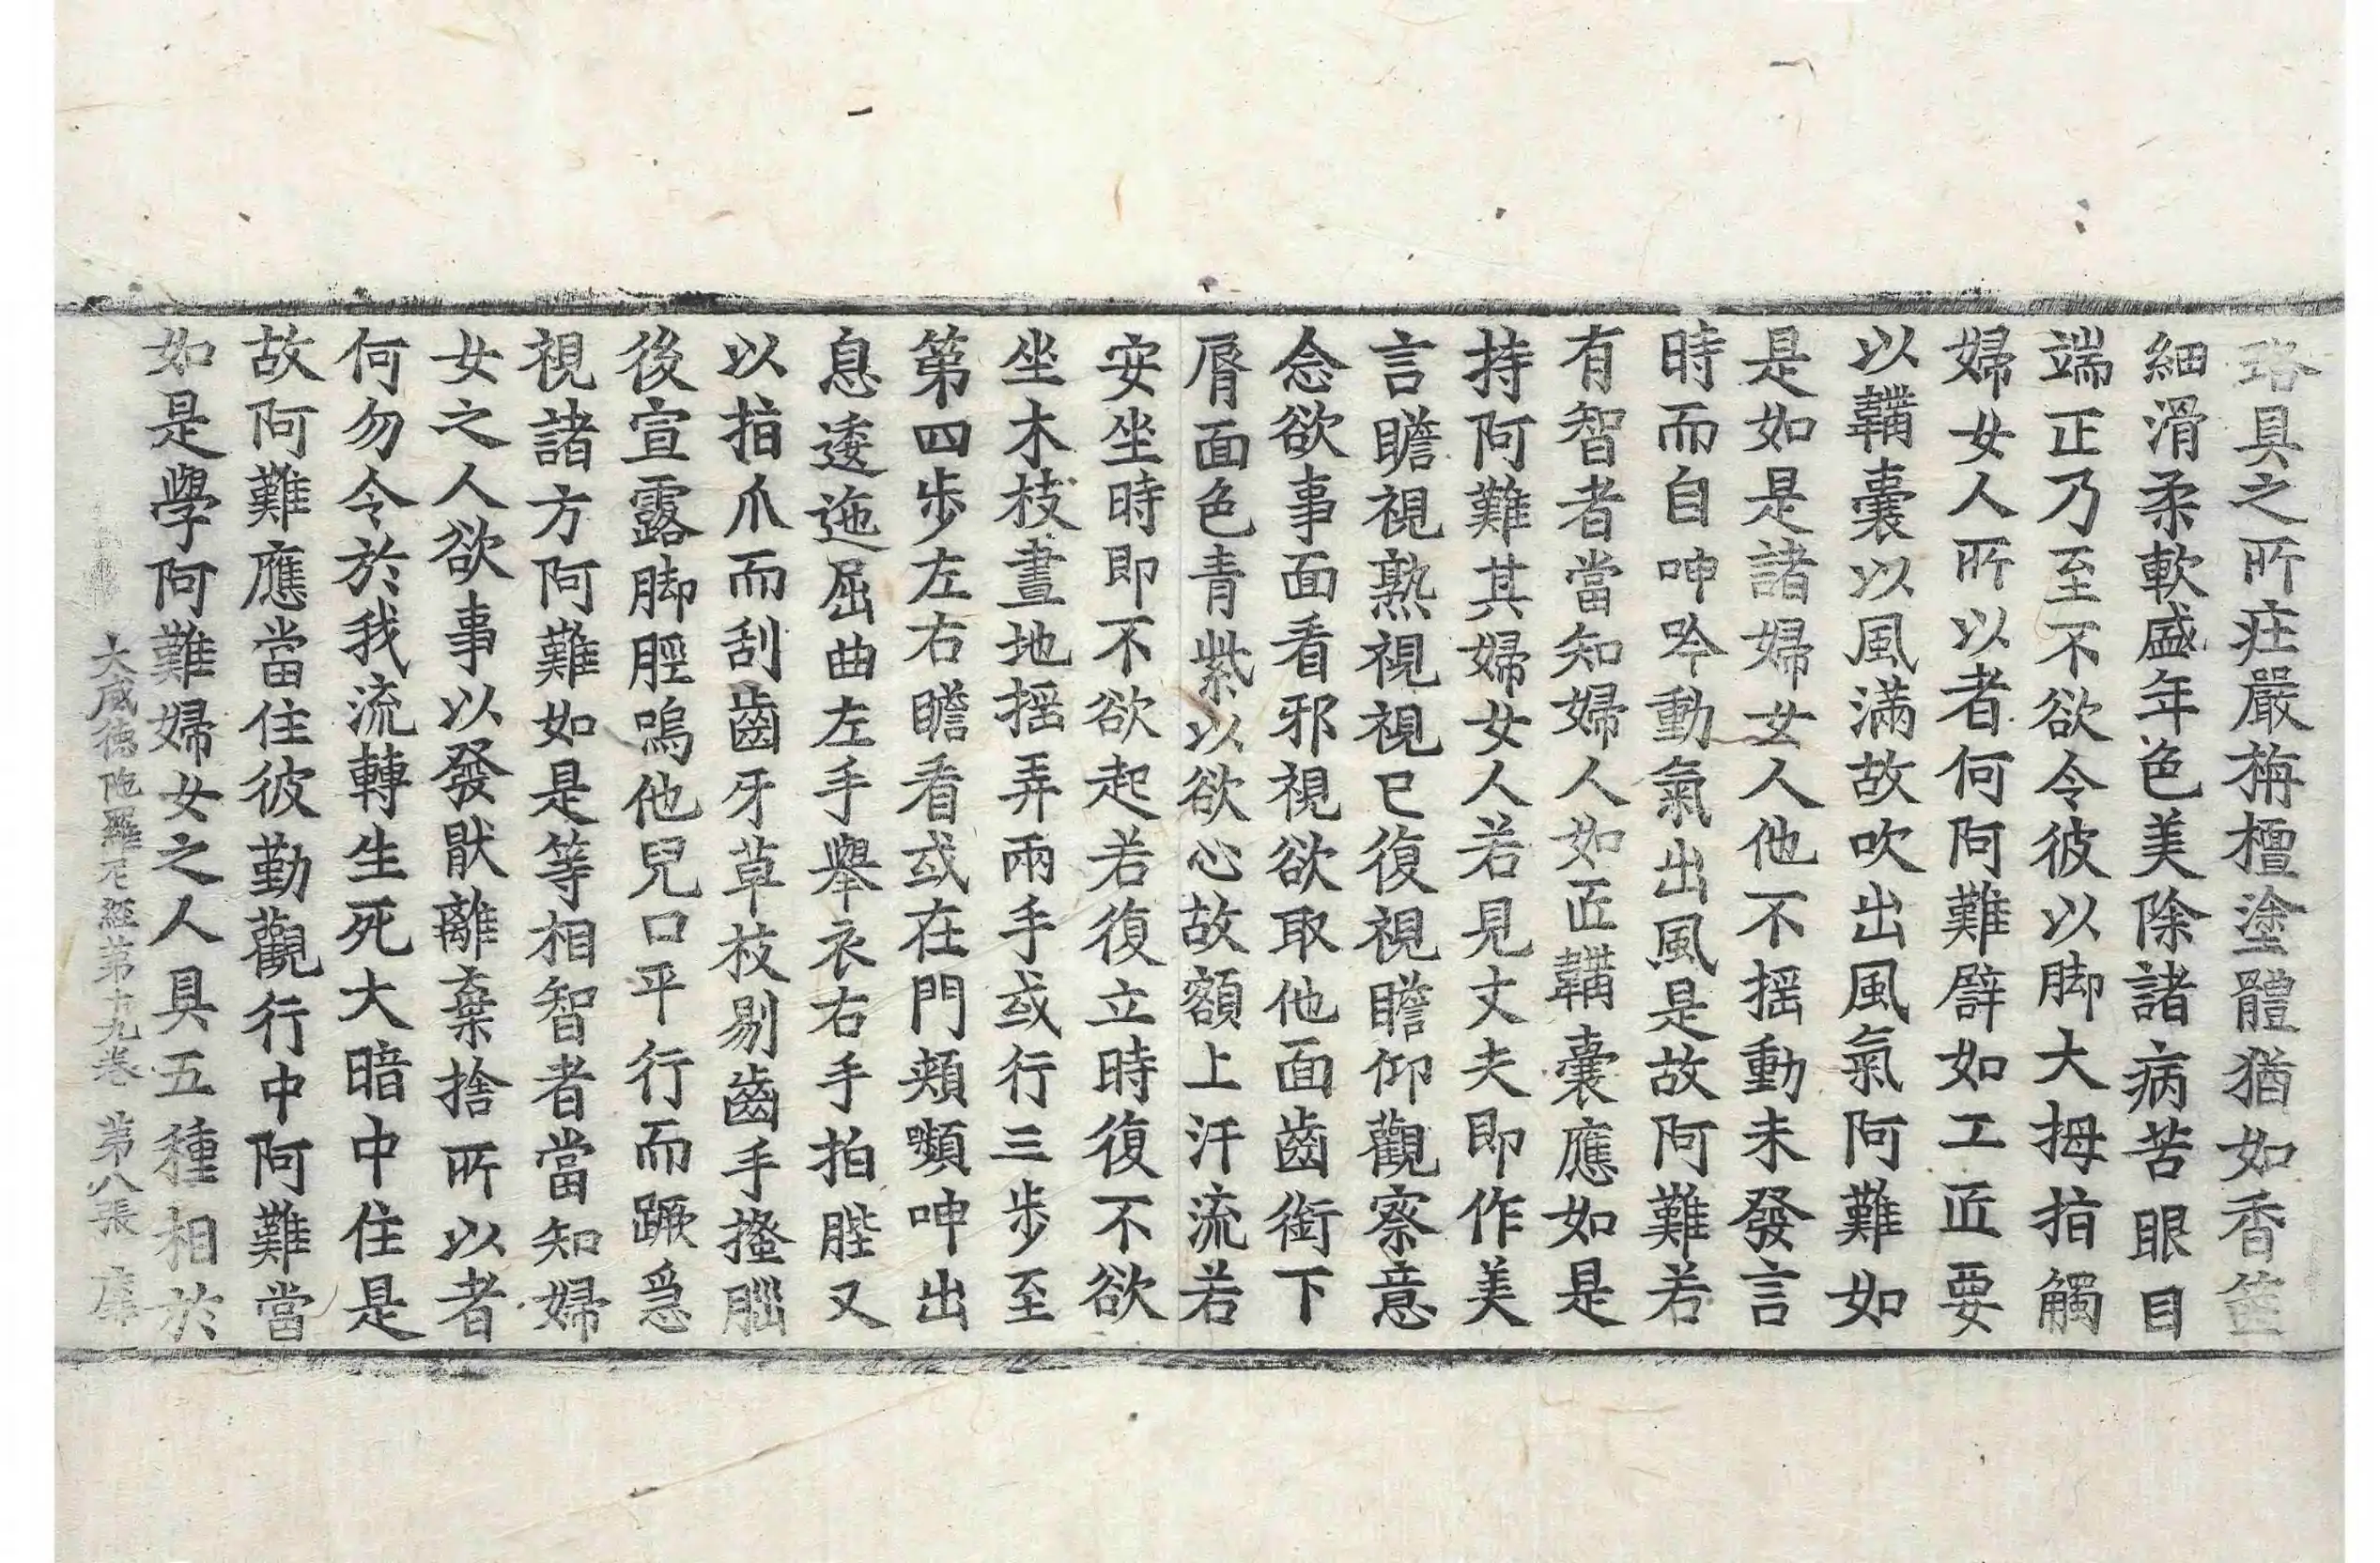 珞具之所疘嚴栴檀塗體猶如香篋
細滑柔軟盛年色美除諸病苦眼目
端正乃至不欲令彼以脚大拇指觸
婦女人所以者何阿難譬如工匠要
以韛囊以風滿故吹出風氣阿難如
是如是諸婦女人他不搖動未發言
時而自呻吟動氣出風是故阿難若
有智者當知婦人如匠韛囊應如是
持阿難其婦女人若見丈夫即作美
言瞻視熟視視已復視瞻仰觀察意
念欲事面看邪視欲取他面齒銜下
脣面色青紫以欲心故額上汗流若
安坐時即不欲起若復立時復不欲
坐木枝畫地搖弄兩手或行三步至
第四步左右瞻看或在門頰嚬呻出
息逶迤屈曲左手舉衣右手拍髀又
以指爪而刮齒牙草枝剔齒手搔腦
後宣露脚脛嗚他兒口平行而蹶急
視諸方阿難如是等相智者當知婦
女之人欲事以發猒離棄捨所以者
何勿令於我流轉生死大暗中住是
故阿難應當住彼勤觀行中阿難當
如是學阿難婦女之人具五種相於
大威德陁羅尼経第十九卷 第八張